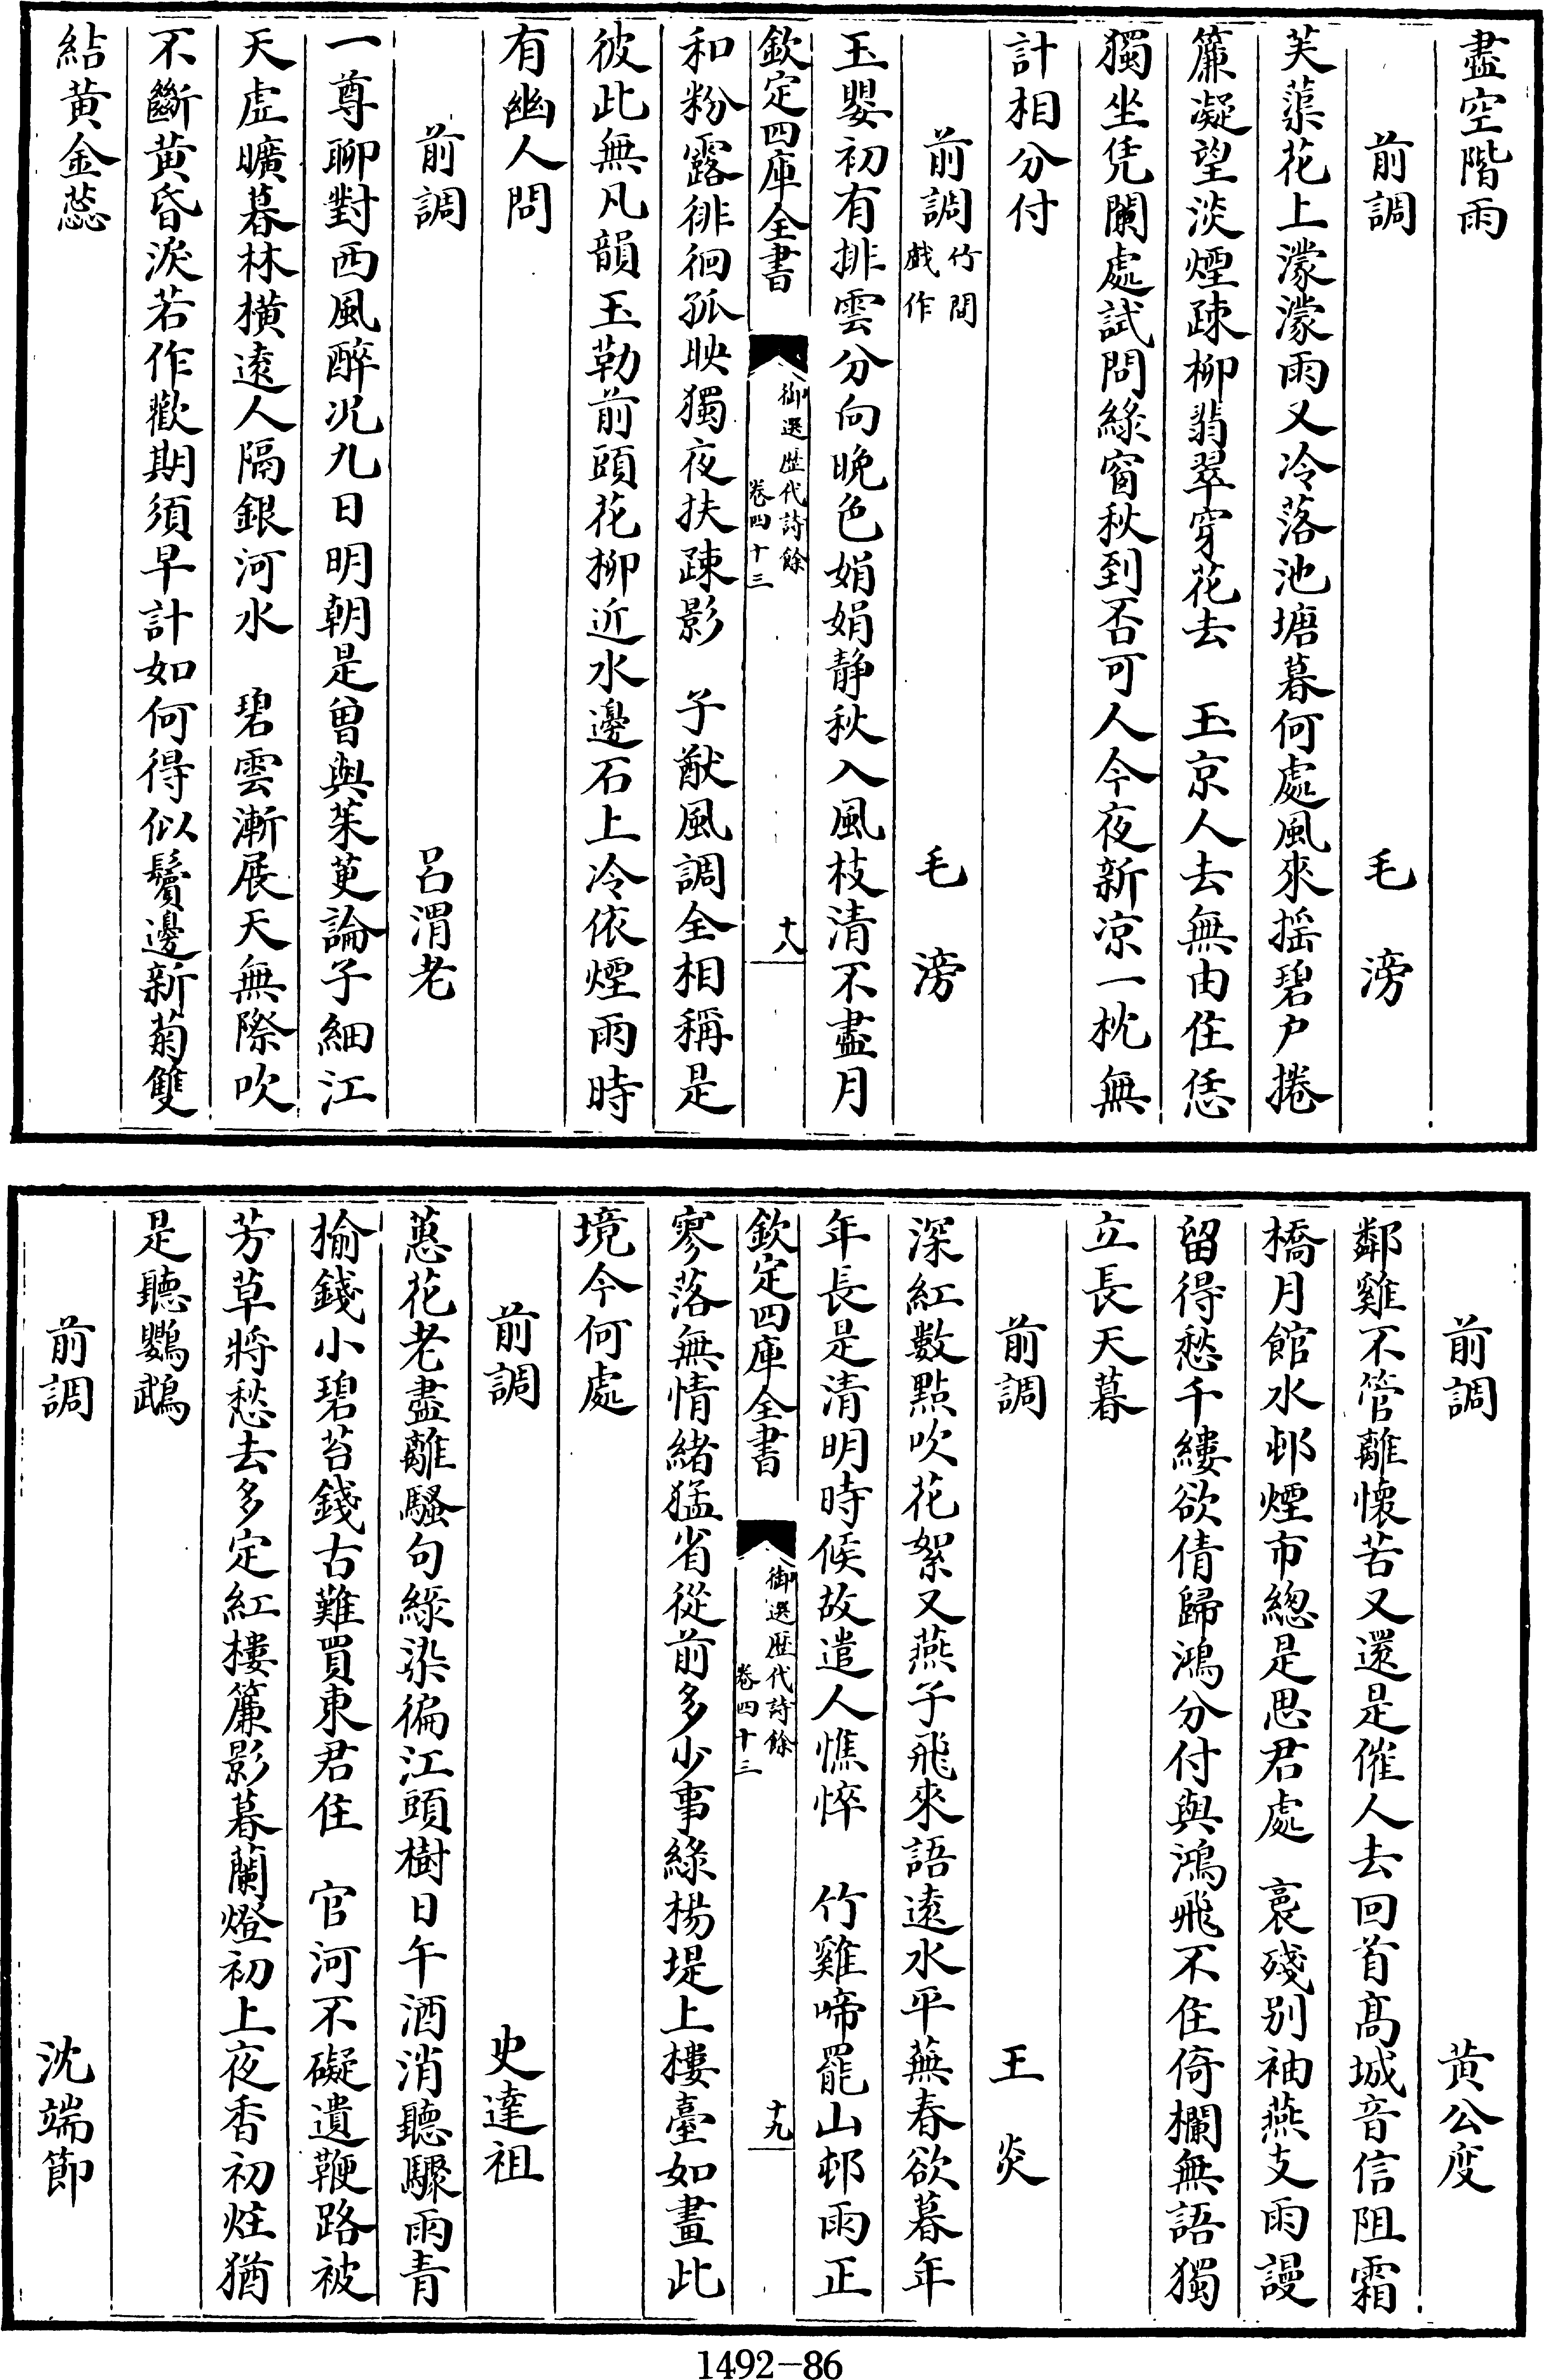 盡空階雨
前調　毛　滂
芙蕖花上濛濛雨又冷落池塘暮何處風來揺碧户捲
簾凝望淡煙疎柳翡翠穿花去　玉京人去無由住恁
獨坐凭闌處試問緑窗秋到否可人今夜新凉一枕無
計相分付
前調竹間戲作　毛　滂
玉嬰初有排雲分向晚色娟娟静秋入風枝清不盡月
欽定四庫全書　御選歴代詩餘卷四十三　十八
和粉露徘徊孤映獨夜扶疎影　子猷風調全相稱是
彼此無凡韻玉勒前頭花柳近水邊石上冷依煙雨時
有幽人問
前調　吕渭老
一尊聊對西風醉况九日明朝是曾與茱萸論子細江
天虚曠暮林横逺人隔銀河水　碧雲漸展天無際吹
不斷黄昏淚若作歡期須早計如何得似鬢邊新菊雙
結黄金蕊
前調　黄公度
鄰雞不管離懷苦又還是催人去回首髙城音信阻霜
橋月館水邨煙市總是思君處　裛殘别袖燕支雨謾
留得愁千縷欲倩歸鴻分付與鴻飛不住倚欄無語獨
立長天暮
前調　王　炎
深紅數點吹花絮又燕子飛來語逺水平蕪春欲暮年
年長是清明時候故遣人憔悴　竹雞啼罷山邨雨正
欽定四庫全書　御選歴代詩餘卷四十三　十九
寥落無情緒猛省從前多少事緑楊堤上樓臺如畫此
境今何處
前調　史達祖
蕙花老盡離騷句緑染徧江頭樹日午酒消聽驟雨青
揄錢小碧苔錢古難買東君住　官河不礙遺鞭路被
芳草將愁去多定紅樓簾影暮蘭燈初上夜香初炷猶
是聽鸚鵡
前調　沈端節
1492-86